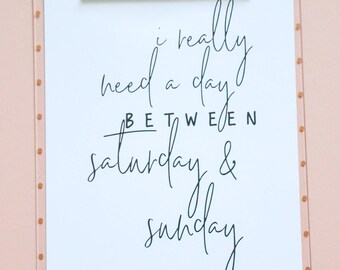 i really
need a day
BETWEEN
saturday &
sunday